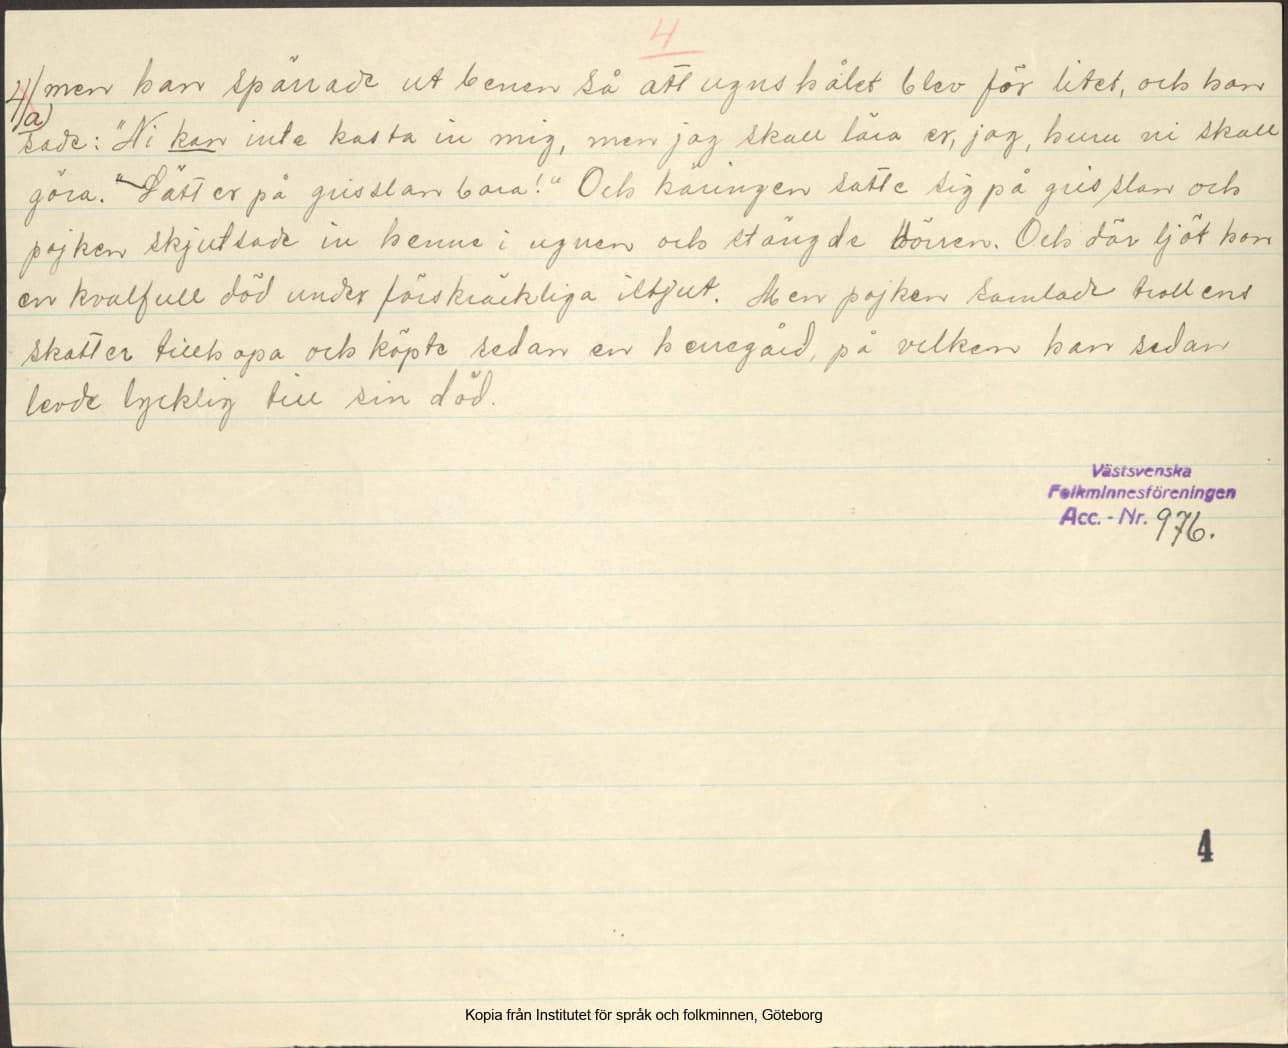 4
4/ men han spärrade ut benen så att ugnshålet blev för litet, och han
a)
sade: "Ni kan inte kasta in mig, men jag skall lära er, jag, huru ni skall
göra." "Sätt er på grisslan bara!" Och käringen satte sig på grisslan och
pojken skjutsade in henne i ugnen och stängde dörren. Och där ljöt hon
en kvalfull död under förskräckliga illtjut. Men pojken samlade trollens
skatter tillhopa och köpte sedan en herregård, på vilken han sedan
levde lycklig till sin död.
Västsvenska
Folkminnesföreningen
Acc. - Nr. 976.
4
Kopia från Institutet för språk och folkminnen, Göteborg